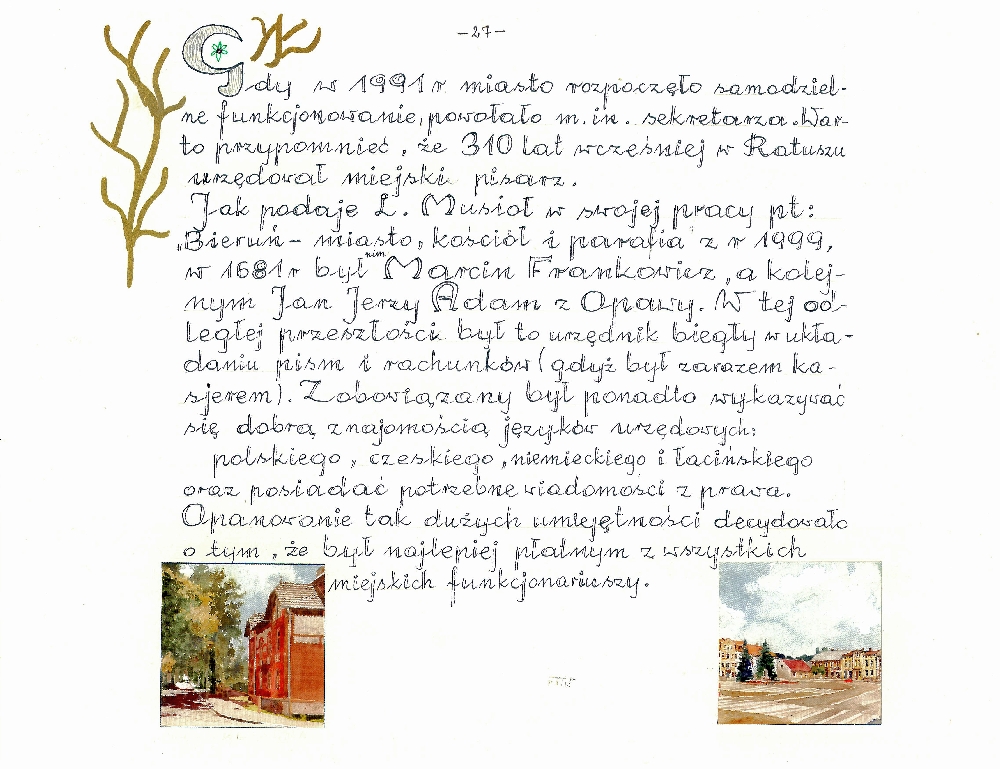 -27-
Gdy w 1991 r miasto rozpoczęło samodziel-
ne funkcjonowanie, powołało m.in. sekretarza. War-
to przypomnieć, że 310 lat wcześniej w Ratuszu
urzędował miejski pisarz.
Jak podaje L. Musioł w swojej pracy pt:
„Bieruń - miasto, kościół i parafia" z r 1999,
w 1681 r był nim Marcin Frankowicz, a kolej-
nym Jan Jerzy Adam z Opawy. W tej od-
ległej przeszłości był to urzędnik biegły w ukła-
daniu pism i rachunków (gdyż był zarazem ka-
sjerem). Zobowiązany był ponadto wykazywać
się dobrą znajomością języków urzędowych:
polskiego, czeskiego, niemieckiego i łacińskiego
oraz posiadać potrzebne wiadomości z prawa.
Opanowanie tak dużych umiejętności decydowało
o tym, że był najlepiej płatnym z wszystkich
miejskich funkcjonariuszy.